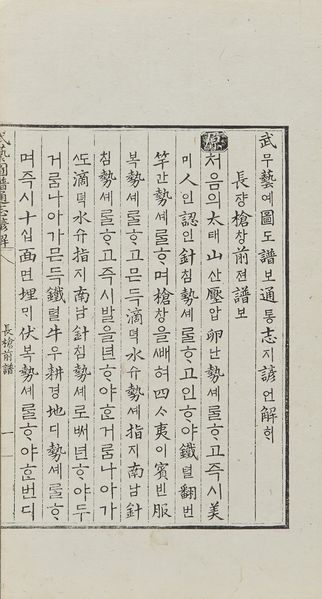 武무藝예圖도譜보通통志지諺언解ᄒᆡ
長쟝槍창前젼譜보
처음의太태山산壓압卵난勢셰ᄅᆞᆯᄒᆞ고즉시美
미人인認인針침勢셰ᄅᆞᆯᄒᆞ고인ᄒᆞ야鐵텰翻번
竿간勢셰ᄅᆞᆯᄒᆞ며槍창을ᄲᅢ혀四ᄉᆞ夷이賓빈服
복勢셰ᄅᆞᆯᄒᆞ고믄득滴뎍水슈勢셰指지南남針
침勢셰ᄅᆞᆯᄒᆞ고즉시발을년ᄒᆞ야ᄒᆞᆫ거ᄅᆞᆷ나아가
ᄯᅩ滴뎍水슈指지南남針침勢셰로ᄡᅥ년ᄒᆞ야두
거ᄅᆞᆷ나아가믄득鐵텰牛우耕경地디勢셰ᄅᆞᆯᄒᆞ
며즉시十십面면埋ᄆᆡ伏복勢셰ᄅᆞᆯᄒᆞ야ᄒᆞᆫ번디
武藝圖譜通志諺解
長槍前譜
一